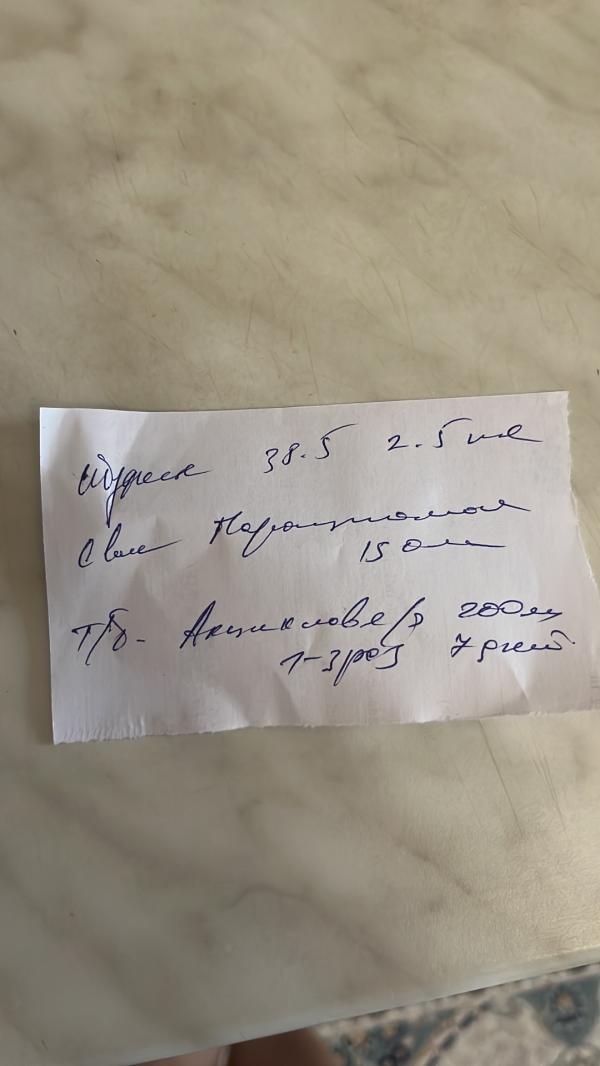 Ибуфен 38.5 2.5 мл
Свеч Парацетамол
150мг
т/б- Ацикловер 200мг
1-3 раз 7 дней